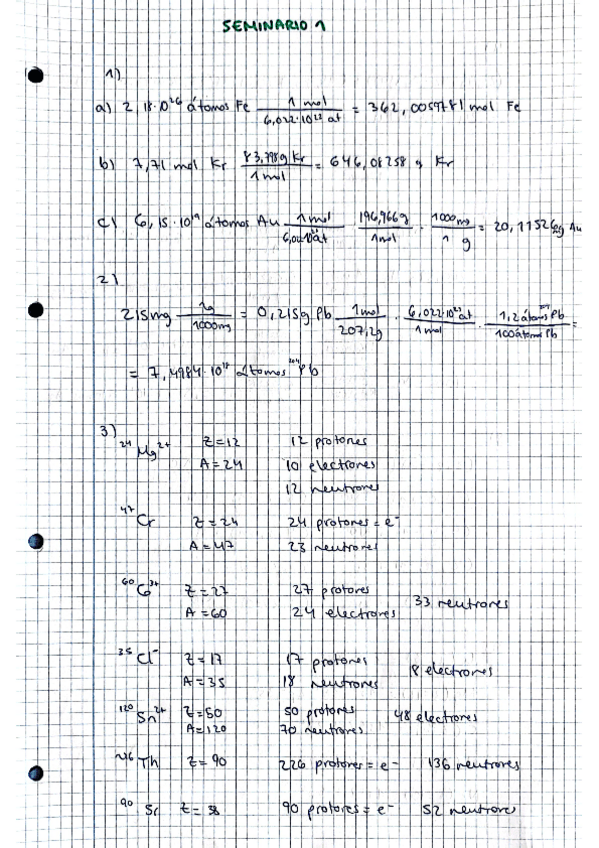 SEMINARIO 1
1)
a) 2,18·10²⁶ átomos Fe 1 mol / 6,022·10²³ at = 362,0059781 mol Fe
b) 7,71 mol Kr 83,798g Kr / 1 mol = 646,08258 g Kr
c) 6,15·10¹⁹ átomos Au 1 mol / 6,022·10²³ át · 196,966g / 1 mol · 1000 mg / 1 g = Au
2)
215mg 1g / 1000mg = 0,215g Pb 1 mol / 207,2g · 6,022·10²³ at / 1 mol · 1,2 átomos Pb / 100 átomos Pb =
= 7,4984·10¹⁸ átomos ²⁰⁴Pb
3)
²⁴Mg²⁺ Z=12 12 protones
A=24 10 electrones
12 neutrones
⁴⁷Cr Z=24 24 protones = e⁻
A=47 23 neutrones
⁶⁰Co³⁺ Z=27 27 protones 33 neutrones
A=60 24 electrones
³⁵Cl⁻ Z=17 17 protones 18 electrones
A=35 18 neutrones
¹²⁰Sn²⁺ Z=50 50 protones 48 electrones
A=120 70 neutrones
²²⁶Th Z=90 226 protones = e⁻ 136 neutrones
⁹⁰Sr Z=38 90 protones = e⁻ 52 neutrones